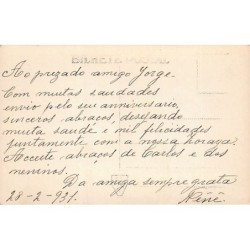 BILHETE POSTAL
Ao prezado amigo Jorge.
Com muitas saudades
envio pelo seu anniversario,
sinceros abraços, desejando
muita saude e mil felicidades
juntamente com a nossa
Acceite abraços de Carlos e dos
meninos.
Da amiga sempre grata
28-2-931.